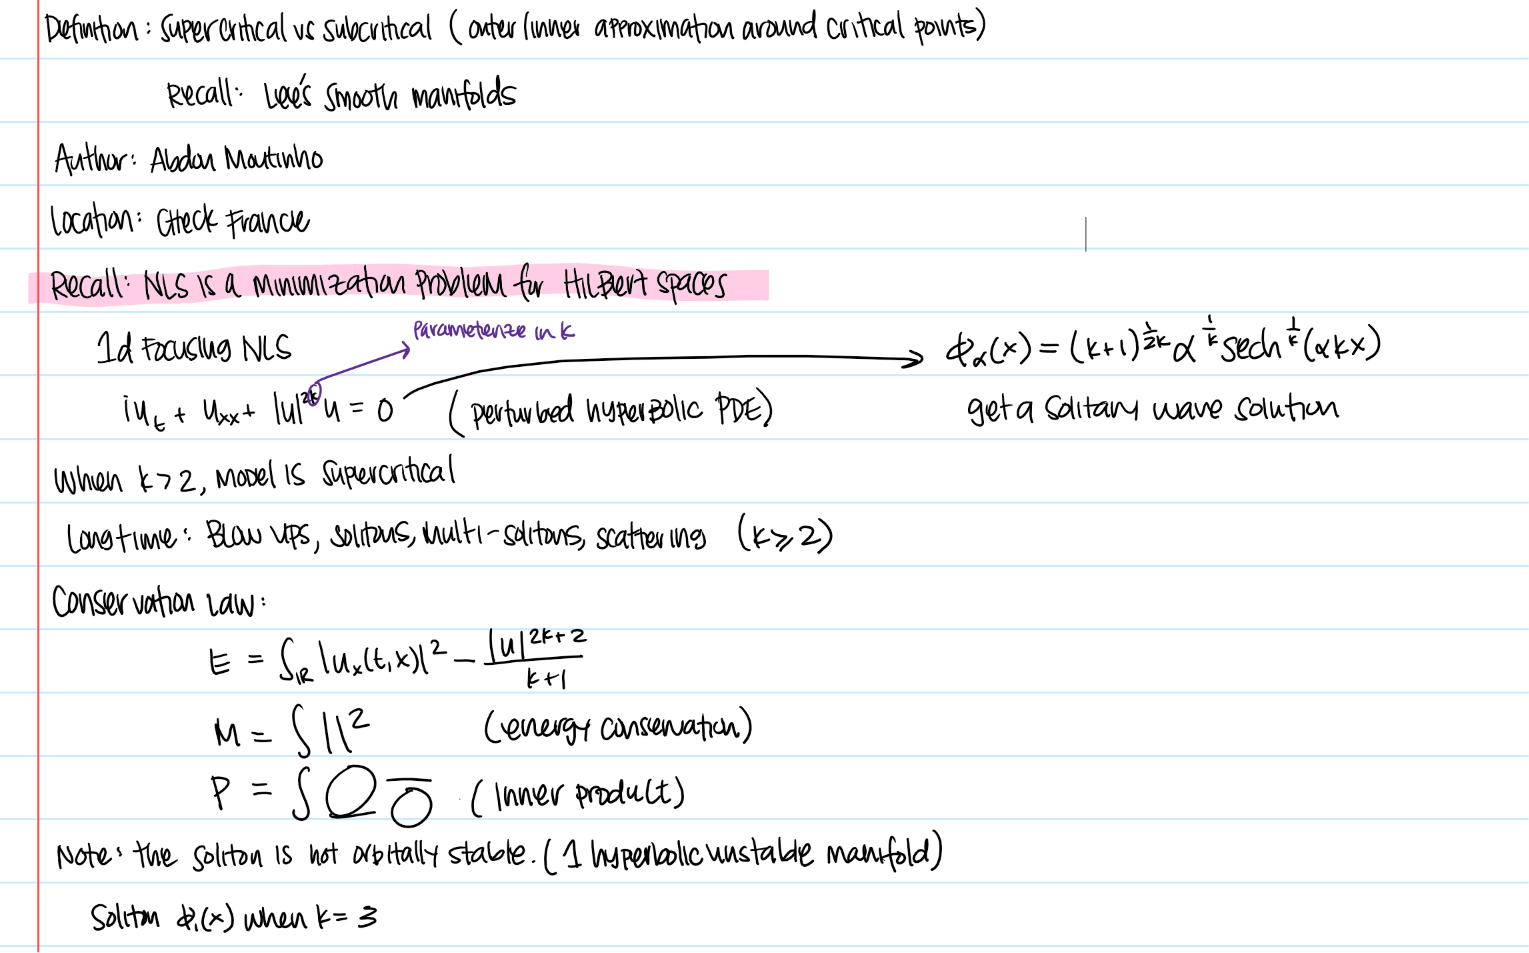 Definition: supercritical vs subcritical (outer/inner approximation around critical points)
Recall: Lee's smooth manifolds
Author: Abdon Moutinho
Location: Check France
Recall: NLS is a minimization problem for Hilbert spaces
Parameterize in k
1d Focusing NLS
ϕ_α(x) = (k+1)^{1/2k} α^{1/k} sech^{1/k}(αkx)
iu_t + u_xx + |u|^{2k} u = 0 (perturbed hyperbolic PDE)
get a solitary wave solution
When k>2, model is supercritical
Longtime: Blow ups, solitons, multi-solitons, scattering (k⩾2)
Conservation Law:
E = ∫_ℝ |u_x(t,x)|^2 − |u|^{2k+2}/k+1
M = ∫ ||^2 (energy conservation)
P = ∫ (Inner product)
Note: the soliton is not orbitally stable. (1 hyperbolic unstable manifold)
Soliton ϕ_1(x) when k = 3